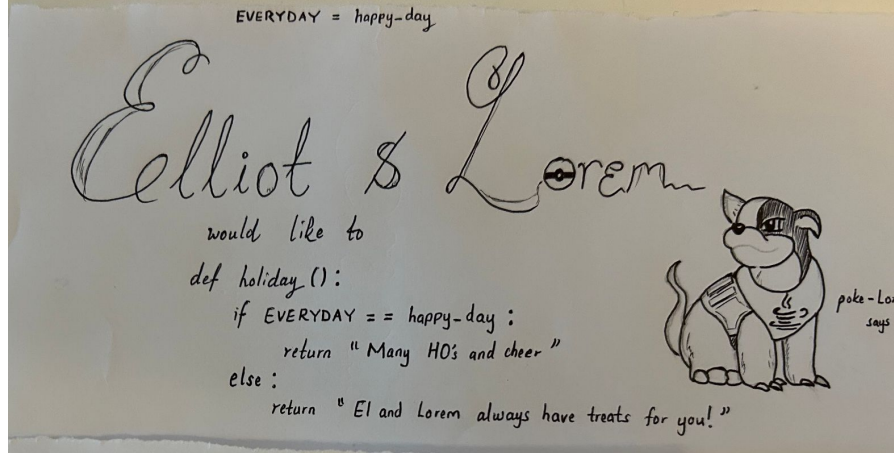 EVERYDAY = happy_day
Elliot & Lorem
would like to
def holiday():
if EVERYDAY == happy_day:
return "Many HO's and cheer"
else:
return "El and Lorem always have treats for you!"
says